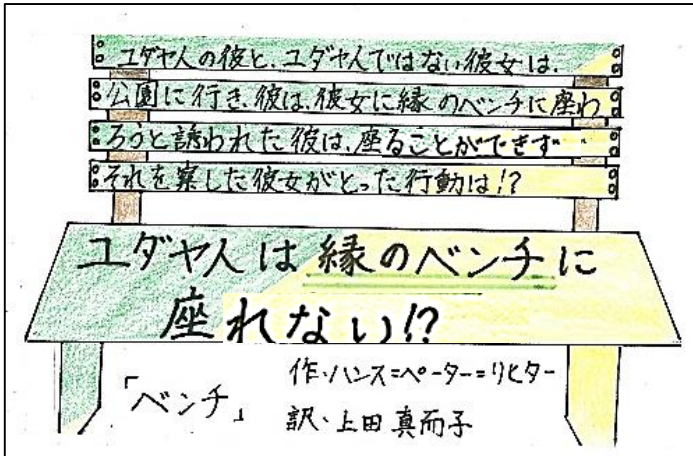 ユダヤ人の彼と、ユダヤ人ではない彼女は、
公園に行き、彼は、彼女に縁のベンチに座わ
ろうと誘われた彼は、座ることができず…
それを察した彼女がとった行動は!?
ユダヤ人は縁のベンチに
座れない!?
「ベンチ」
作・ハンス=ペーター=リヒター
訳・上田真而子